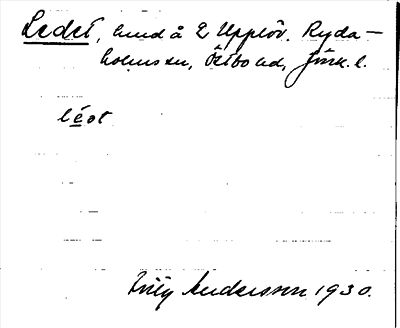 Ledet, lund å L Upplöv. Ryda-
holms sn, Östbo hd, Jönk. l.
léot
Willy Andersson 1930.